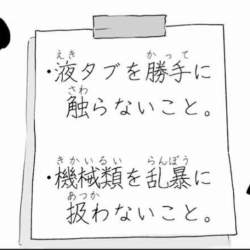 ・液タブを勝手に
触らないこと。
・機械類を乱暴に
扱わないこと。